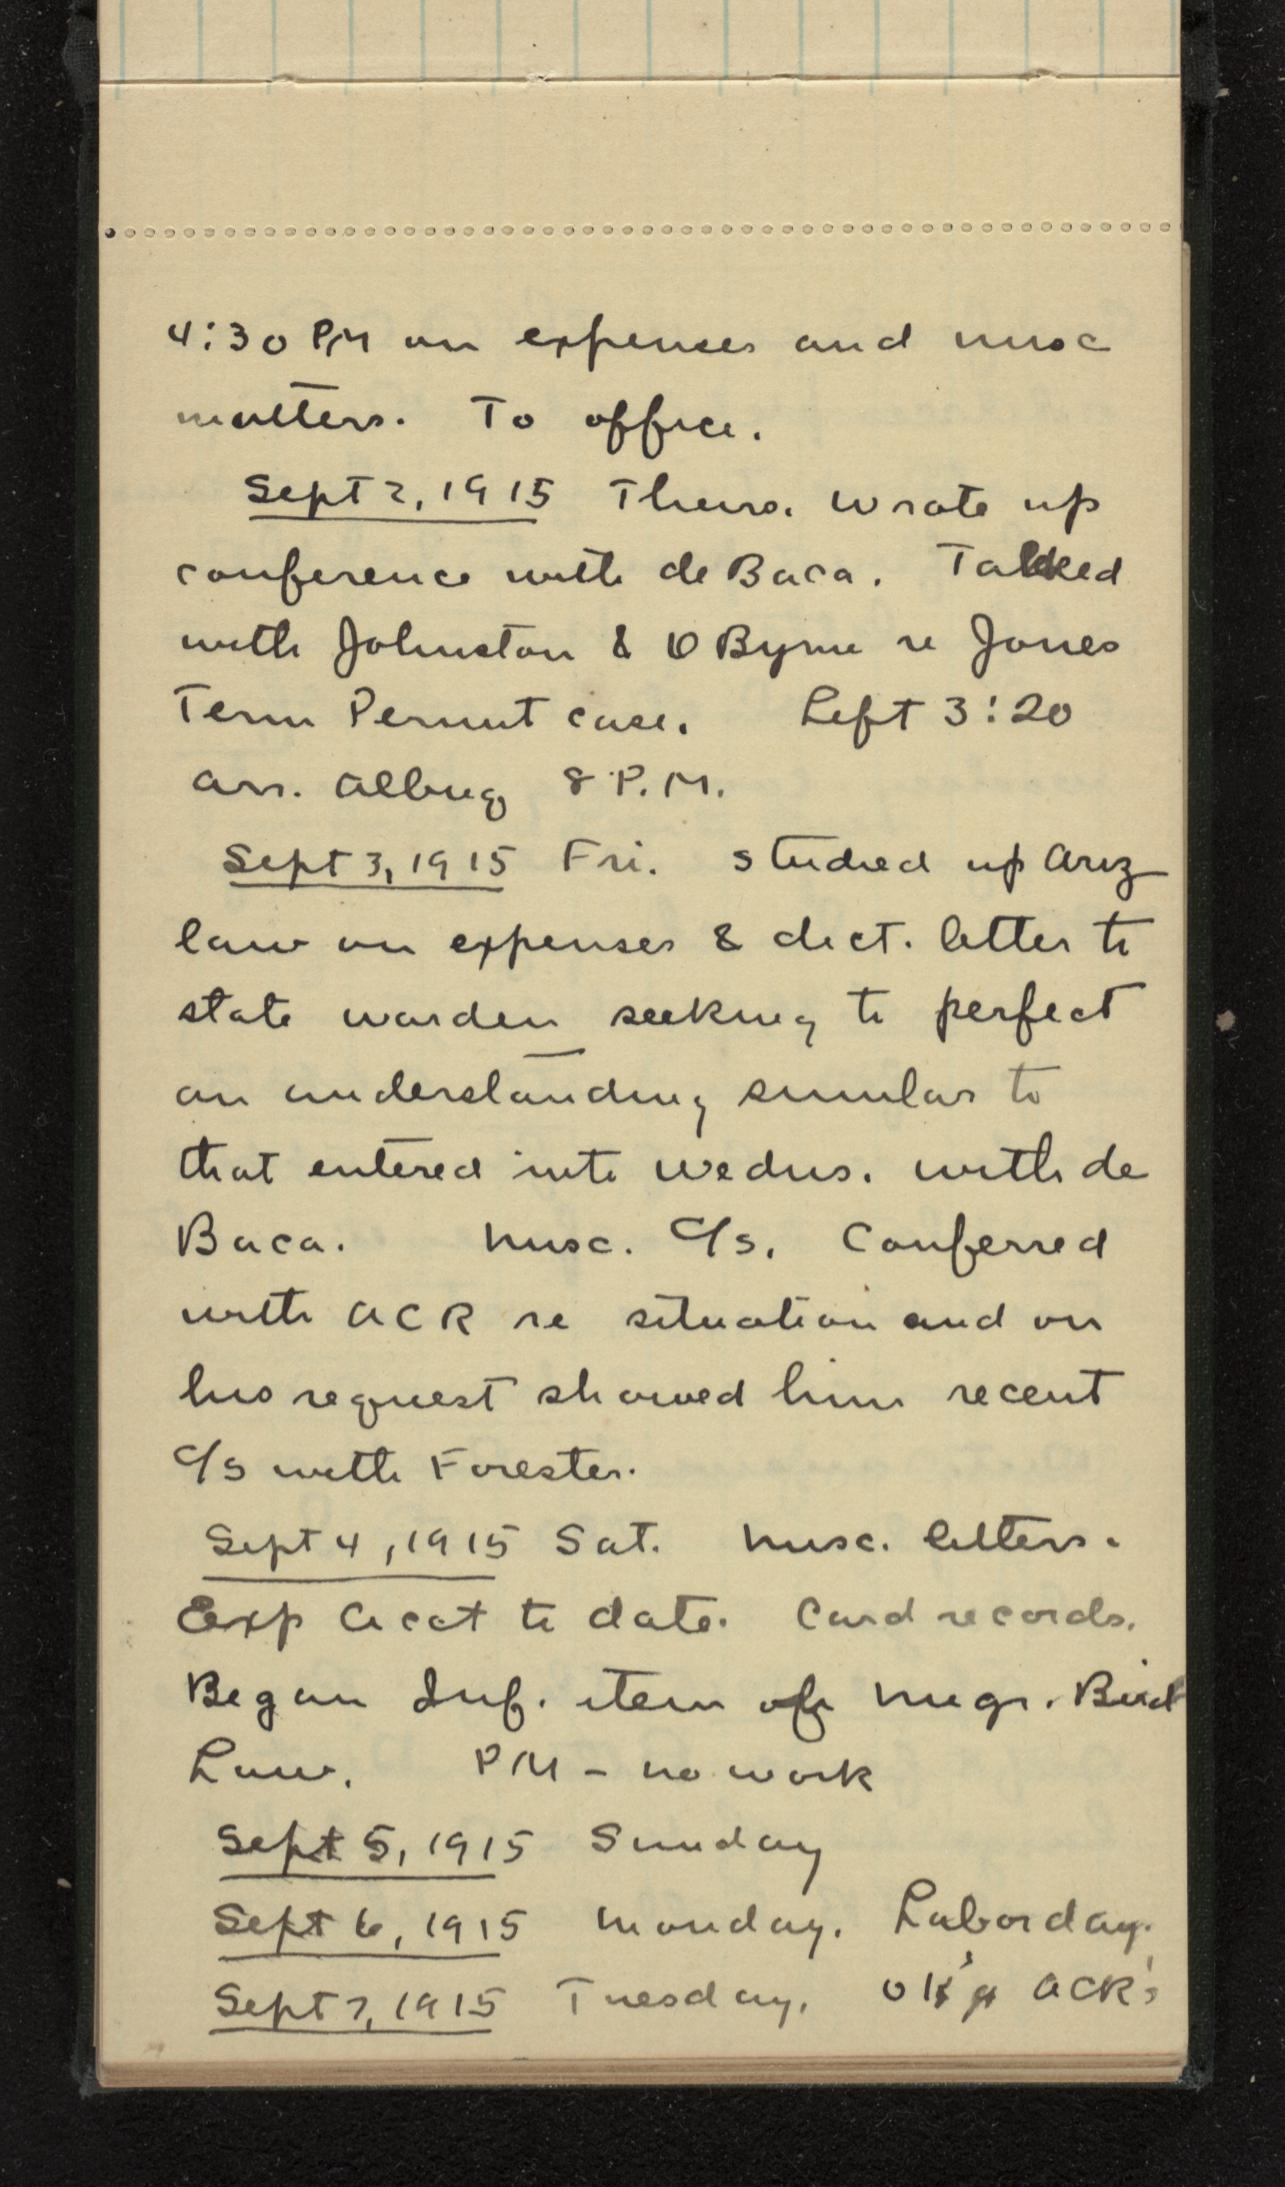 4:30 PM on expenses and misc
matters. To office.
Sept 2, 1915 Thurs. Wrote up
conference with de Baca. Talked
with Johnston & O Byrne re Jones
Term Permit case. Left 3:20
arr. Albuq 8 P.M.
Sept 3, 1915 Fri. Studied up Ariz
law on expenses & dict. letter to
state warden seeking to perfect
an understanding similar to
that entered into Wedns. with de
Baca. Misc. C/s. Conferred
with ACR re situation and on
his request showed him recent
C/s with Forester.
Sept 4, 1915 Sat. Misc. letters.
Exp Acct to date. Card records.
Began Inf. item of Migr. Bird
Law. PM - no work
Sept 5, 1915 Sunday
Sept 6, 1915 Monday. Labor day.
Sept 7, 1915 Tuesday. ACR's